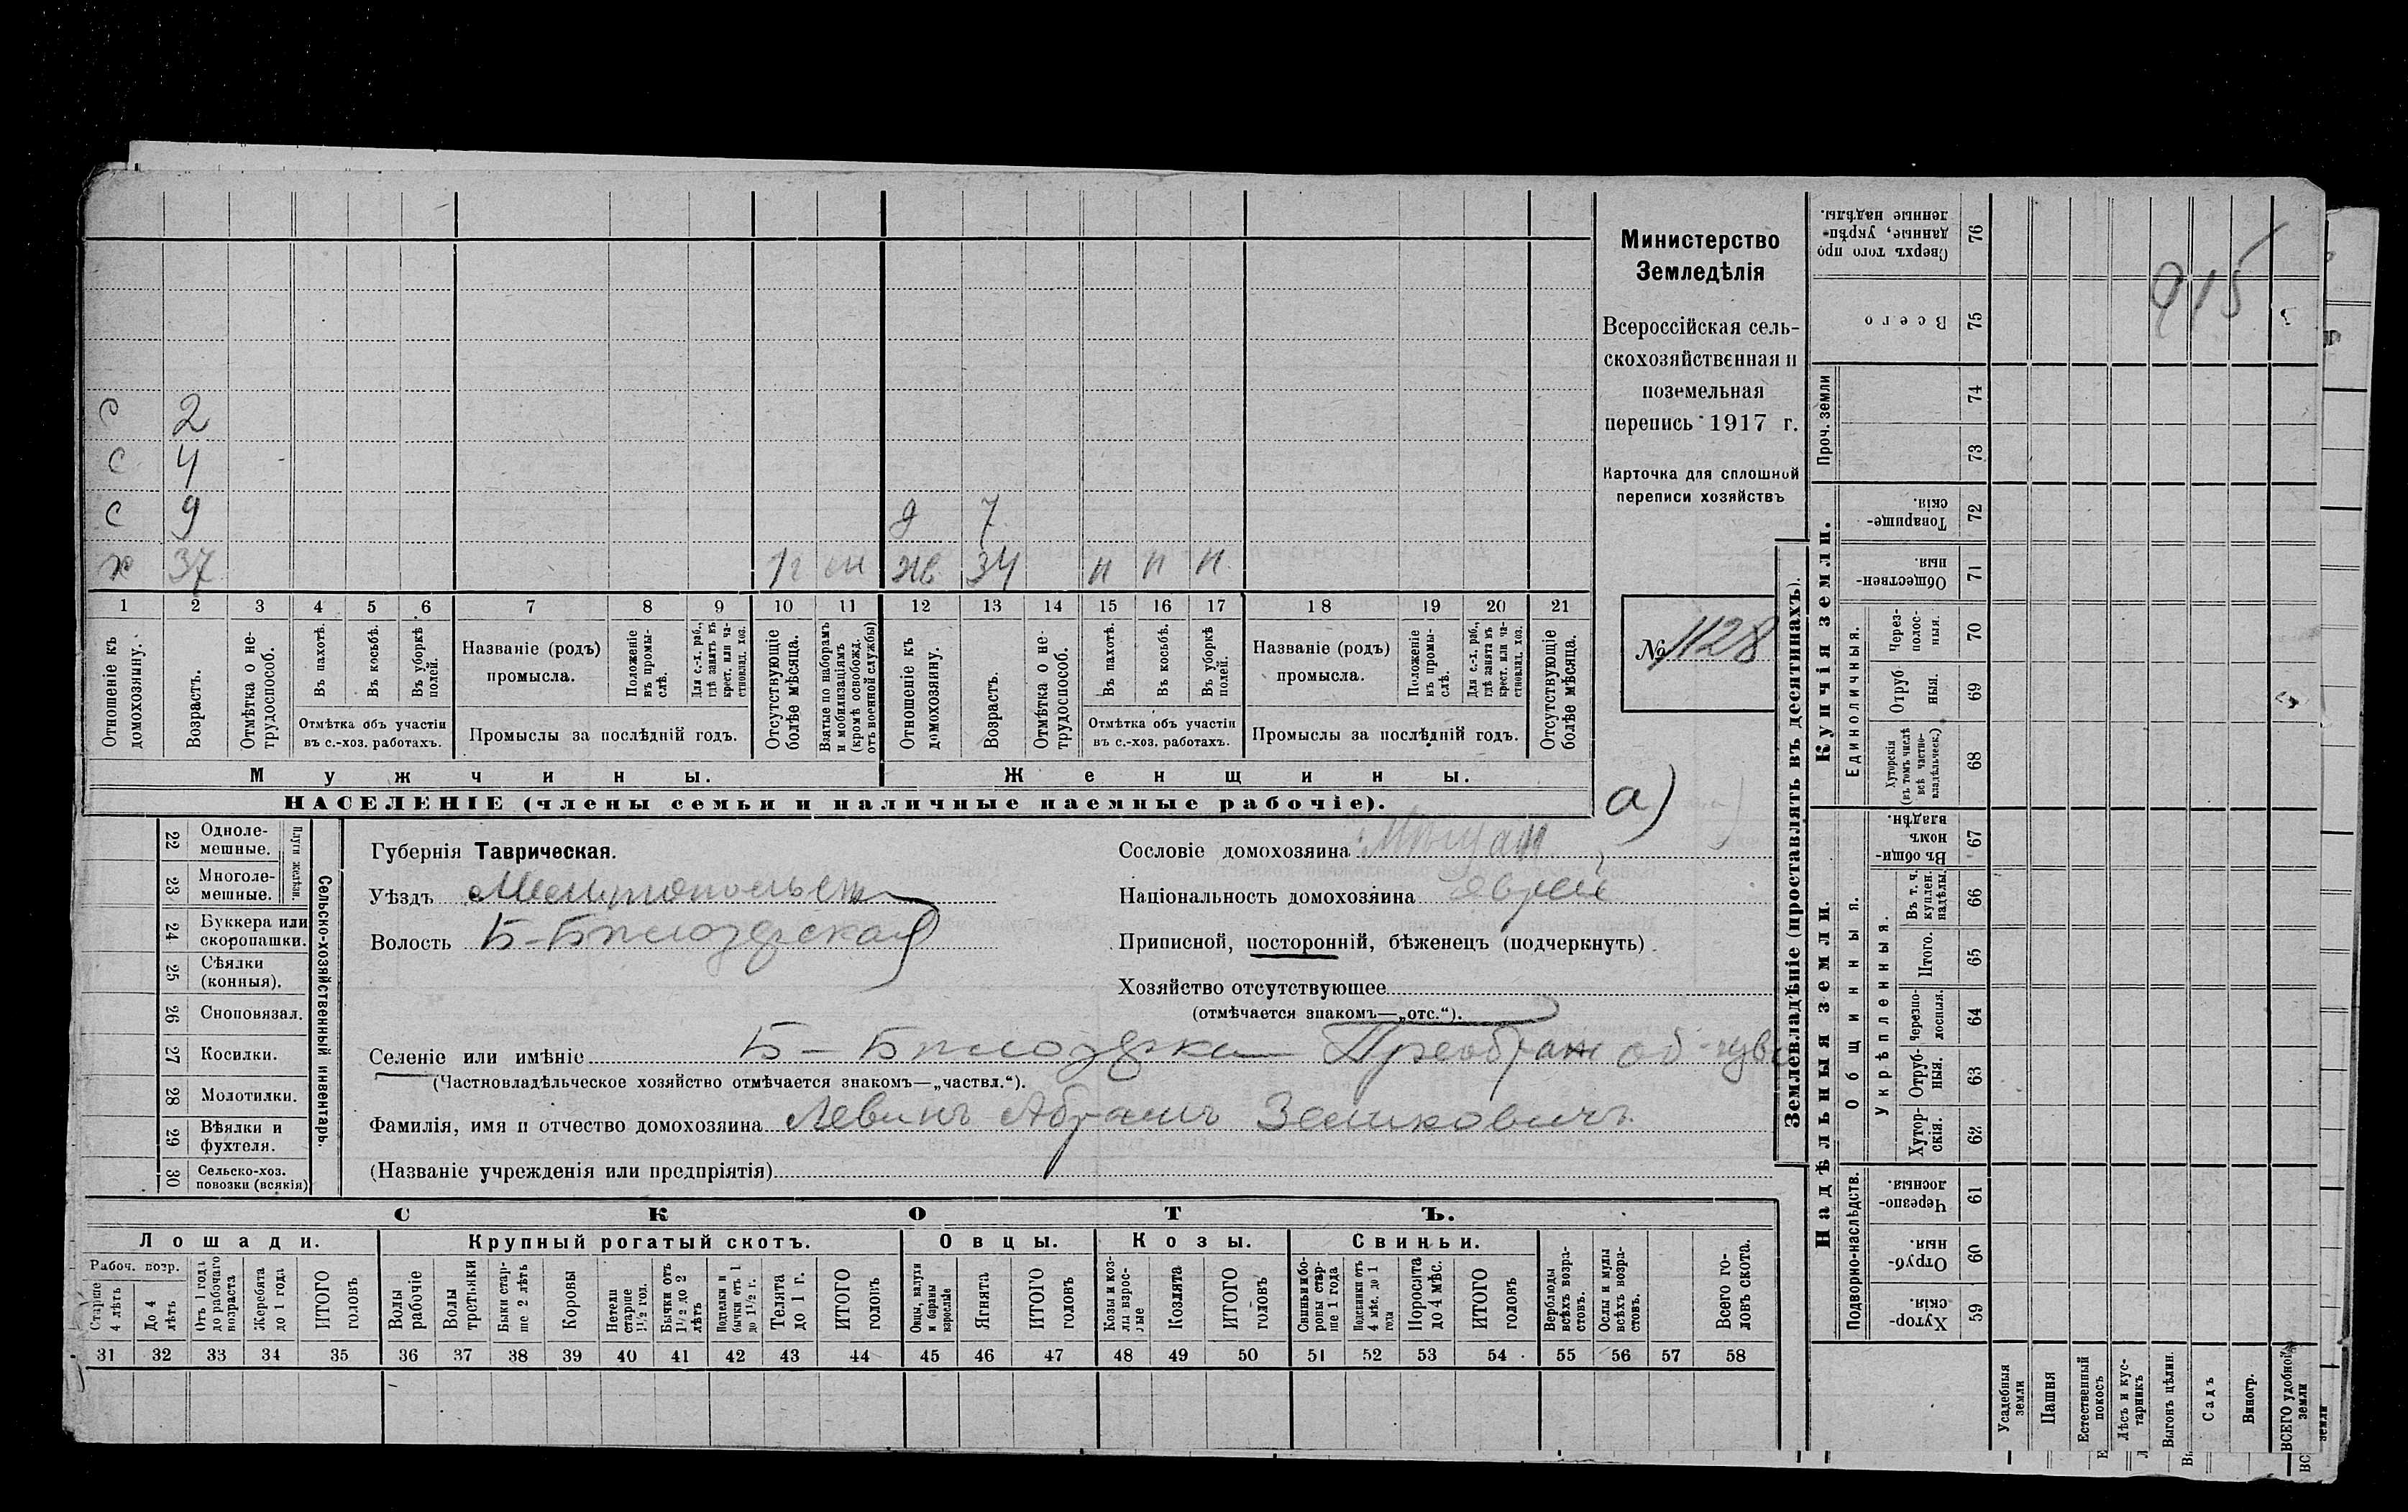 С 2
С 4
С 9 д 7
х 37 1 г жв 34 п п п
1 2 3 4 5 6 7 8 9 10 11 12 13 14 15 16 17 18 19 20 21
Отношеніе къ домохозяину.
Возрастъ.
Отмѣтка о не-трудоспособ.
Въ пахотѣ.
Въ косьбѣ.
Въ уборкѣ полей.
Отмѣтка объ участіи
въ с.-хоз. работахъ.
Названіе (родъ)
промысла.
Положеніе въ промы-слѣ.
Для с.-х. раб., гдѣ занятъ въ крест. или ча-стновлад. хоз.
Промыслы за послѣдній годъ.
Отсутствующіе болѣе мѣсяца.
Взятые по наборамъ и мобилизаціямъ (кромѣ освобожд. отъ военной службы)
Отношеніе къ домохозяину.
Возрастъ.
Отмѣтка о не-трудоспособ.
Въ пахотѣ.
Въ косьбѣ.
Въ уборкѣ полей.
Отмѣтка объ участіи
въ с.-хоз. работахъ.
Названіе (родъ)
промысла.
Положеніе въ промы-слѣ.
Для с.-х. раб., гдѣ занята въ крест. или ча-стновлад. хоз.
Промыслы за послѣдній годъ.
Отсутствующіе болѣе мѣсяца.
Мужчины. Женщины.
НАСЕЛЕНІЕ (члены семьи и наличные наемные рабочіе).
Министерство
Земледѣлія
Всероссійская сель-
скохозяйственная и
поземельная
перепись 1917 г.
Карточка для сплошной
переписи хозяйствъ
№ 1128
а)
22 Одноле-
мешные.
23 Многоле-
мешные.
Плуги желѣзн.
24 Буккера или
скоропашки.
25 Сѣялки
(конныя).
26 Сноповязал.
27 Косилки.
28 Молотилки.
29 Вѣялки и
фухтеля.
30 Сельско-хоз.
повозки (всякія)
Сельско-хозяйственный инвентарь.
Губернія Таврическая.
Уѣздъ Мелитопольск
Волость Б-Бѣлозерская
Сословіе домохозяина Мѣщан
Національность домохозяина еврей
Приписной, посторонній, бѣженецъ (подчеркнуть)
Хозяйство отсутствующее
(отмѣчается знакомъ—„отс.“).
Селеніе или имѣніе Б-Бѣлозерка Преображ об-тва
(Частновладѣльческое хозяйство отмѣчается знакомъ—„частвл.“).
Фамилія, имя и отчество домохозяина Левинъ Абрамъ Зеликовичъ
(Названіе учрежденія или предпріятія)
СКОТЪ.
Лошади. Крупный рогатый скотъ. Овцы. Козы. Свиньи.
Рабоч. возр.
Старше 4 лѣтъ
До 4 лѣтъ
Отъ 1 года до рабочаго возраста
Жеребята до 1 года
ИТОГО головъ
Волы рабочіе
Волы третьяки
Быки стар-ше 2 лѣтъ
Коровы
Нетели старше 1½ год.
Бычки отъ 1½ до 2 лѣтъ
Подтелки и бычки отъ 1 до 1½ г.
Телята до 1 г.
ИТОГО головъ
Овцы, валухи и бараны взрослые
Ягнята
ИТОГО головъ
Козы и коз-лы взрос-лые
Козлята
ИТОГО головъ
Свиньи и бо-ровы стар-ше 1 года
Подсвинки отъ 4 мѣс. до 1 года
Поросята до 4 мѣс.
ИТОГО головъ
Верблюды всѣхъ возра-стовъ.
Ослы и мулы всѣхъ возра-стовъ.
Всего го-ловъ скота.
31 32 33 34 35 36 37 38 39 40 41 42 43 44 45 46 47 48 49 50 51 52 53 54 55 56 57 58
Землевладѣніе (проставлять въ десятинахъ).
Надѣльныя земли. Купчія земли. Проч. земли
Подворно-наслѣдств.
Общинныя.
Укрѣпленныя.
Единоличныя.
Сверхъ того про-данные, укрѣп-ленные надѣлы. 76
Всего 75
74
73
Товарище-скія. 72
Обществен-ныя. 71
Через-полос-ныя. 70
Отруб-ныя. 69
Хуторскія (въ томъ числѣ всѣ частно-владѣльческ.) 68
Въ общи-номъ владѣн. 67
Въ т. ч. куплен. надѣлы. 66
Итого. 65
Черезпо-лосныя. 64
Отруб-ныя. 63
Хутор-скія. 62
Черезпо-лосныя. 61
Отруб-ныя. 60
Хутор-скія. 59
915
Усадебныя земли
Пашня
Естественный покосъ
Лѣсъ и кус-тарникъ
Выгонъ цѣлин.
Садъ
Виногр.
ВСЕГО удобной земли